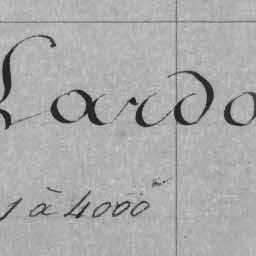 Lardo
1 à 4000